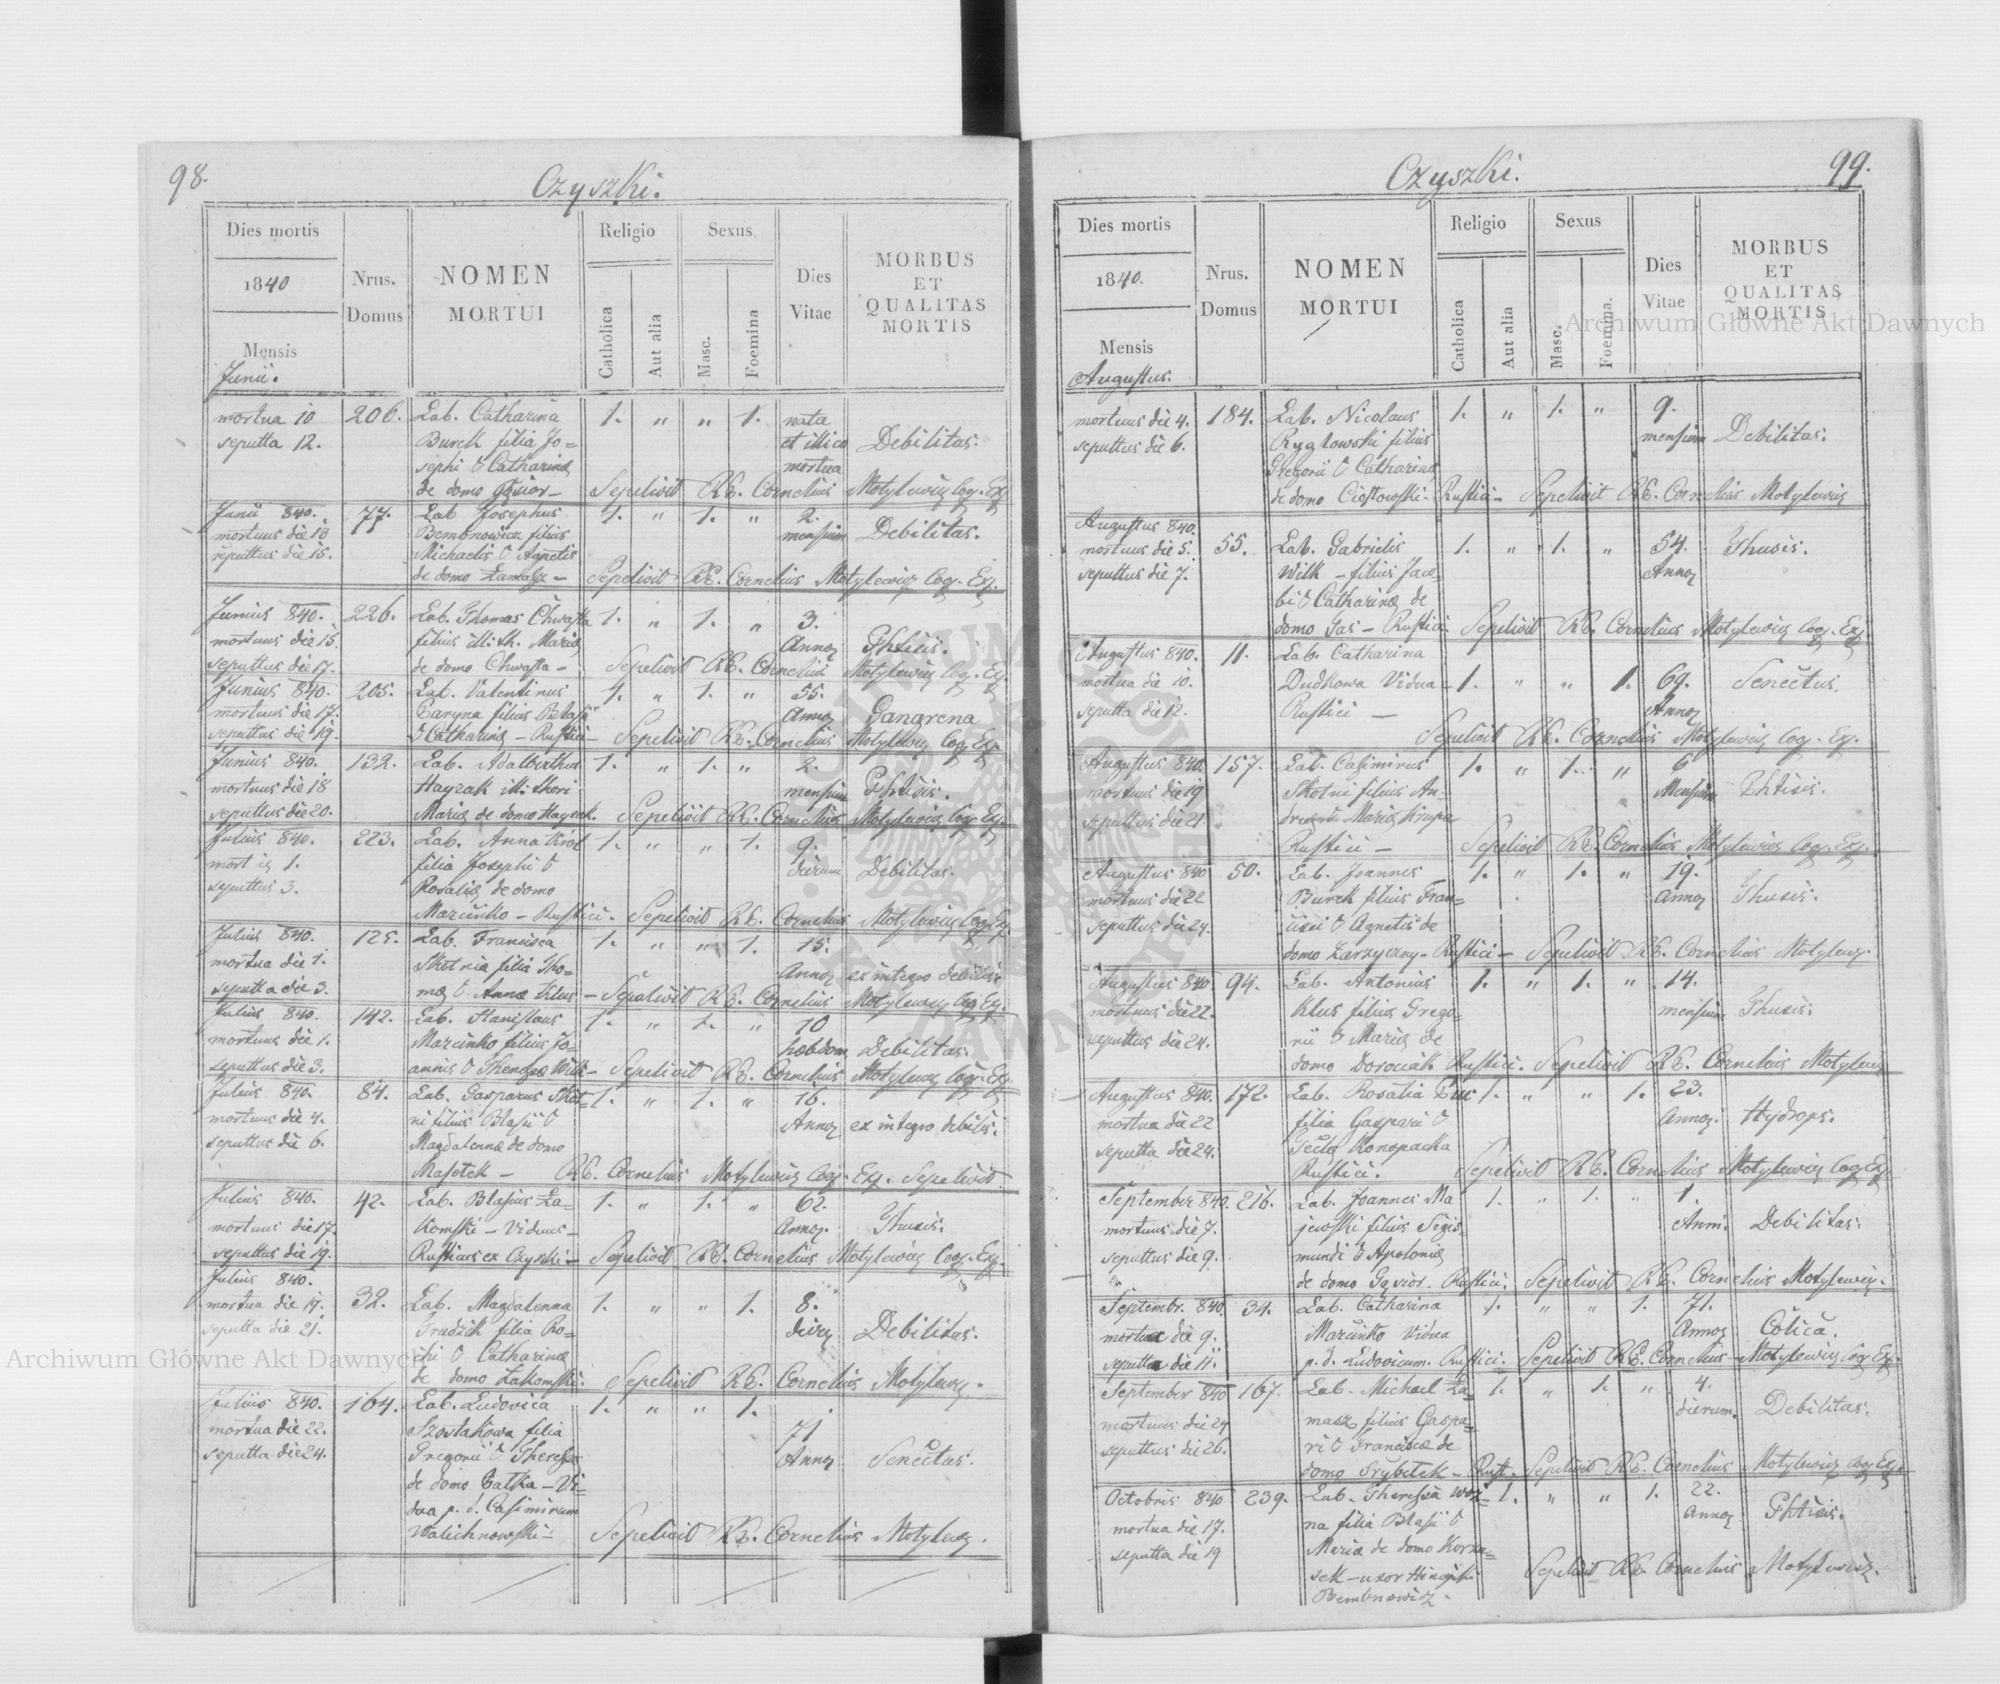 98.
Czyszki.
Dies mortis
1840
Mensis
Junii.
Nrus.
Domus
NOMEN
MORTUI
Religio
Catholica
Aut alia
Sexus
Masc.
Foemina
Dies
Vitae
MORBUS
ET
QUALITAS
MORTIS
mortua 10 206. Lab. Catharina 1. " " 1. nata
sepulta 12. Burek filia Jo= et illico Debilitas.
sephi & Catharina mortua
de domo Sepelivit RE. Cornelius Motylewicz Coop. Exp.
Junii 840. 77. Lab Josephus 1. " 1. " 2.
mortuus die 13 Bembnowicz filius mensium Debilitas.
sepultus die 15. Michaelis & Agnetis
de domo Sepelivit RE. Cornelius Motylewicz Coop. Exp.
Junius 840. 226. Lab. Thomas Chwasta 1. " 1. " 3.
mortuus die 15. filius illith. Maria Annor Phtisis.
sepultus die 17. de domo Chwasta – Sepelivit RE. Cornelius Motylewicz Coop. Exp.
Junius 840. 205. Lab. Valentinus 1. " 1. " 55.
mortuus die 17. filius Blasii Annor Gangrena
sepultus die 19. & Catharina – Rustici – Sepelivit RE. Cornelius Motylewicz Coop. Exp.
Junius 840. 132. Lab. Adalberthus 1. " 1. " 2.
mortuus die 18 illi thori mensium Phtisis.
sepultus die 20. Maria de domo Sepelivit RE. Cornelius Motylewicz Coop. Exp.
Julius 840. 223. Lab. Anna Król 1. " " 1. 9.
1. filia Josephi & dierum Debilitas.
sepultus 3. Rosalia de domo
Marcinko – Rustici. Sepelivit RE. Cornelius Motylewicz Coop. Exp.
Julius 840. 125. Lab. Francisca 1. " " 1. 15.
mortua die 1. Skotnia filia Tho= Annor ex integro debilis
sepulta die 3. ma & Anna Klus – Sepelivit RE. Cornelius Motylewicz Coop. Exp.
Julius 840. 142. Lab. Stanislaus 1. " 1. " 10
mortuus die 1. Marcinko filius Jo= hebdom Debilitas.
sepultus die 3. annis & Wilk – Sepelivit RE. Cornelius Motylewicz Coop. Exp.
Julius 840. 84. Lab. Gasparus Skot= 1. " 1. " 16.
mortuus die 4. ni filius Blasii & Annor ex integro debilis.
sepultus die 6. Magdalenna de domo
RE. Cornelius Motylewicz Coop. Exp. Sepelivit.
Julius 840. 42. Lab. Blasius Ła= 1. " 1. " 62.
mortuus die 17. komski – viduus – Annor. Thusis.
sepultus die 19. Rusticus ex Czyszki – Sepelivit RE. Cornelius Motylewicz Coop. Exp.
Julius 840.
mortua die 19. 32. Lab. Magdalenna 1. " " 1. 8.
sepulta die 21. Grudzik filia Ro= dier Debilitas.
chi & Catharina
de domo Łakomski. Sepelivit RE. Cornelius Motylewicz.
Julius 840. 164. Lab. Ludovica 1. " " 1.
mortua die 22. Szostakowa filia 71
sepulta die 24. Gregorii & Theresa Annor Senectus.
de domo – Vi=
dua p. d. Casimirum
Walichnowski – Sepelivit RE. Cornelius Motylewicz.
99.
Czyszki.
Dies mortis
1840.
Mensis
Augustus.
Nrus.
Domus
NOMEN
MORTUI
Religio
Catholica
Aut alia
Sexus
Masc.
Foemina.
Dies
Vitae
MORBUS
ET
QUALITAS
MORTIS
mortuus die 4. 184. Lab. Nicolaus 1. " 1. " 9.
sepultus die 6. Rygłowski filius mensium Debilitas.
Gregorii & Catharina
de domo Ciostowski – Rustici – Sepelivit RE. Cornelius Motylewicz
Augustus 840.
mortuus die 5. 55. Lab. Gabrielis 1. " 1. " 54. Thusis.
sepultus die 7. Wilk – filius Jaco= Annor
bi & Catharina de
domo Gas – Rustici. Sepelivit RE. Cornelius Motylewicz Coop. Exp.
Augustus 840. 11. Lab. Catharina
mortua die 10. Dudkowa Vidua – 1. " " 1. 69. Senectus.
sepulta die 12. Rustici – Annor
Sepelivit RE. Cornelius Motylewicz Coop. Exp.
Augustus 840. 157. Lab. Casimirus 1. " 1. " 6
mortuus die 19 Skotni filius An= Mensium Phtisis.
sepultus die 21. drea & Maria Krupa
Rustici – Sepelivit RE. Cornelius Motylewicz Coop. Exp.
Augustus 840 50. Lab. Joannes 1. " 1. " 19.
mortuus die 22 Burek filius Fran= Annor Thusis.
sepultus die 24. cisci & Agnetis de
domo Zarzyczny – Rustici – Sepelivit RE. Cornelius Motylewicz
Augustus 840 94. Lab. Antonius 1. " 1. " 14.
mortuus die 22. Klus filius Grego= mensium Thusis.
sepultus die 24. rii & Maria de
domo Dorociak Rustici. Sepelivit RE. Cornelius Motylewicz
Augustus 840. 172. Lab. Rosalia 1. " " 1. 23.
mortua die 22 filia Gaspari & Annor. Hydrops.
sepulta die 24. Tecla Konopacka
Rustici. Sepelivit RE. Cornelius Motylewicz Coop. Exp.
September 840. 216. Lab. Joannes Ma 1. " 1. " 1.
mortuus die 7. jewski filius Sigis= Anni. Debilitas.
sepultus die 9. mundi & Apolonia
de domo Rustici. Sepelivit RE. Cornelius Motylewicz.
Septembr. 840. 34. Lab. Catharina 1. " " 1. 71.
mortua die 9. Marcinko Vidua Annor Colica.
sepulta die 11. p. d. Ludovicum. Rustici. Sepelivit RE. Cornelius Motylewicz Coop. Exp.
September 840 167. Lab. Michael Ła= 1. " 1. " 4.
mortuus die 24 masz filius Gaspa= dierum. Debilitas.
sepultus die 26. ri & Francisca de
domo Grybelek – Rust. Sepelivit RE. Cornelius Motylewicz Coop. Exp.
Octobris 840 239. Lab. Theresia Woz= 1. " " 1. 22.
mortua die 17. na filia Blasii & Annor Phtisis.
sepulta die 19 Maria de domo
uxor
Bembnowicz. Sepelivit RE. Cornelius Motylewicz.
Archiwum Główne Akt Dawnych
Archiwum Główne Akt Dawnych